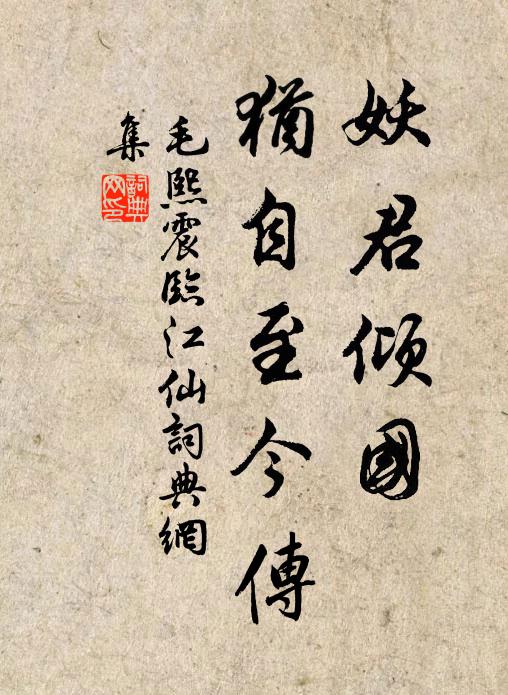 妖君傾國
猶自至今傳
毛熙震臨江仙詞典網
集
詞典网印